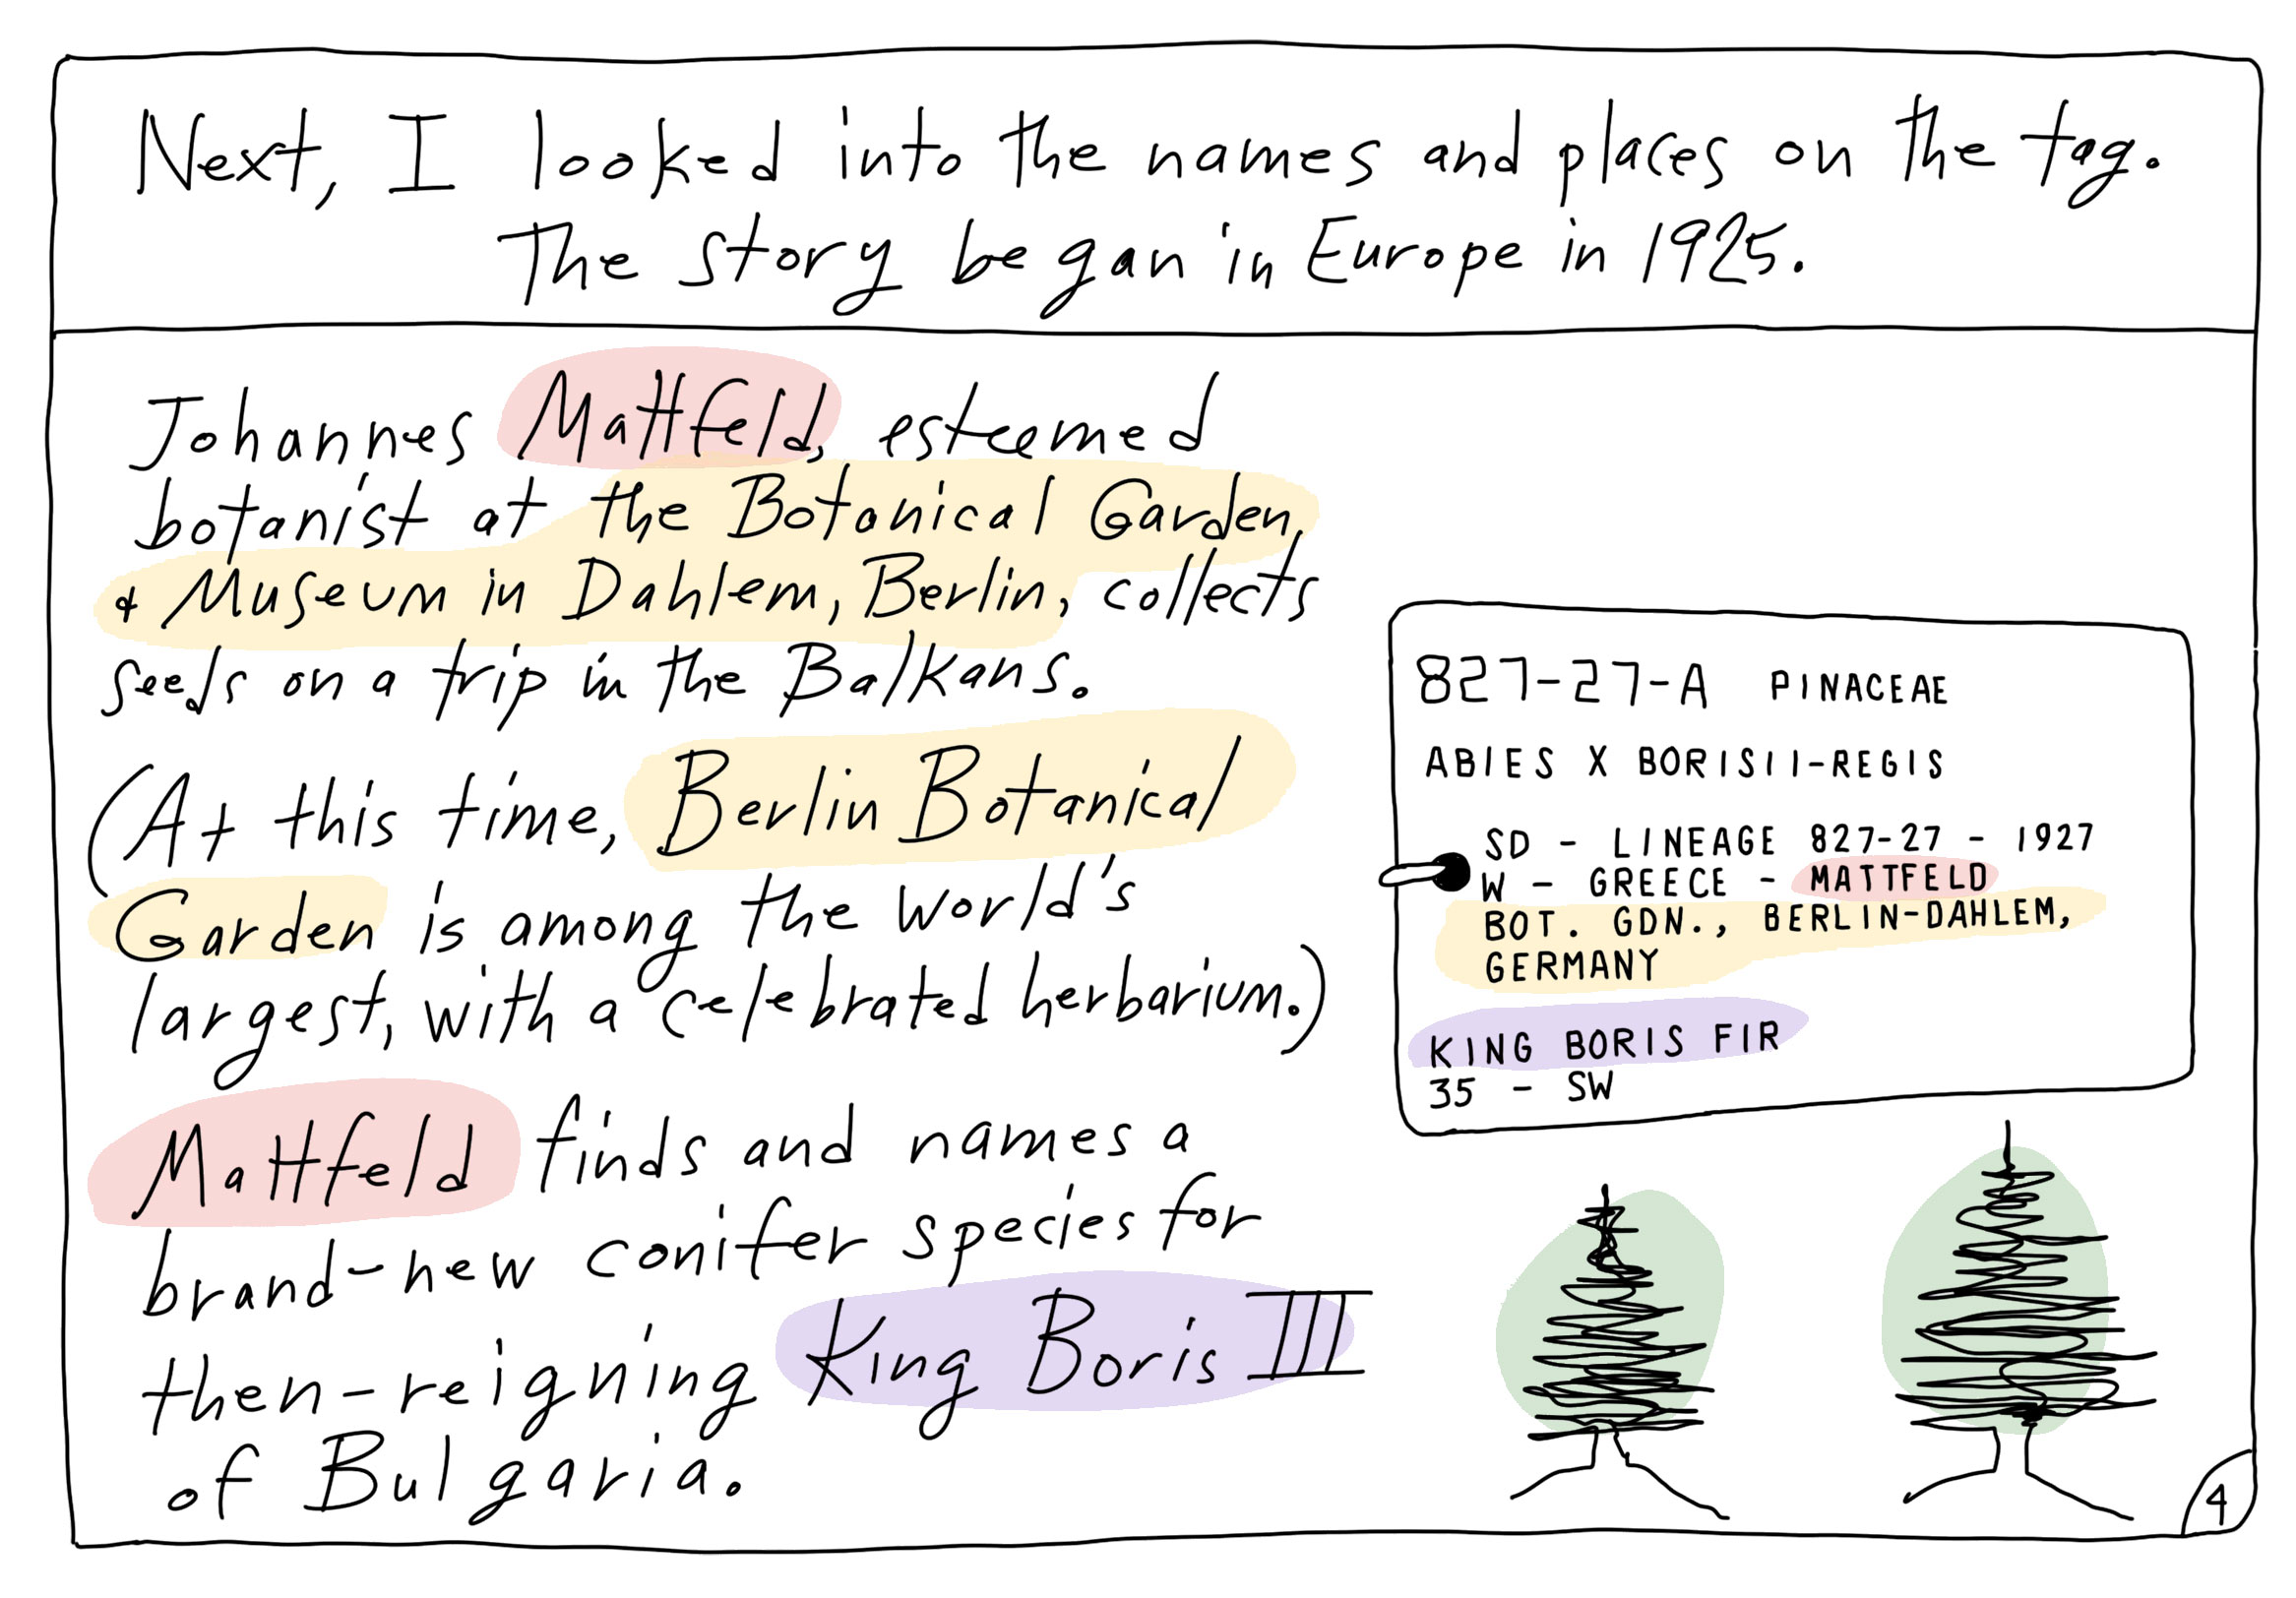 Next, I looked into the names and places on the tag.
The story began in Europe in 1925.
Johannes Mattfeld, esteemed
botanist at the Botanical Garden
& Museum in Dahlem, Berlin, collects
seeds on a trip in the Balkans.
(At this time, Berlin Botanical
Garden is among the world's
largest, with a celebrated herbarium.)
Mattfeld finds and names a
brand-new conifer species for
then-reigning King Boris III
of Bulgaria.
827-27-A PINACEAE
ABIES X BORISII-REGIS
SD - LINEAGE 827-27 - 1927
W - GREECE - MATTFELD
BOT. GDN., BERLIN-DAHLEM,
GERMANY
KING BORIS FIR
35 - SW
4